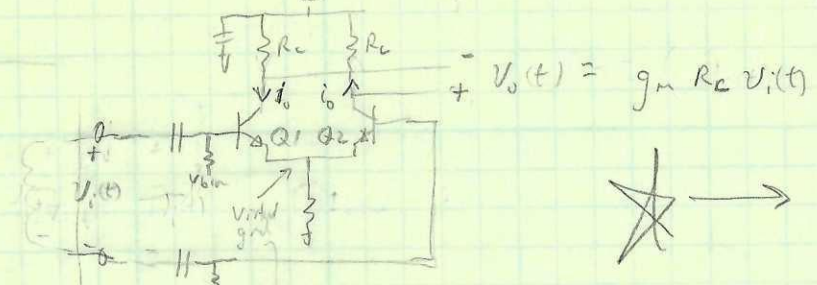 Rc
RL
io
io
-
+
vo(t) = gm Rc vi(t)
Q1 Q2
+
vi(t)
vbias
virtual
gnd
-